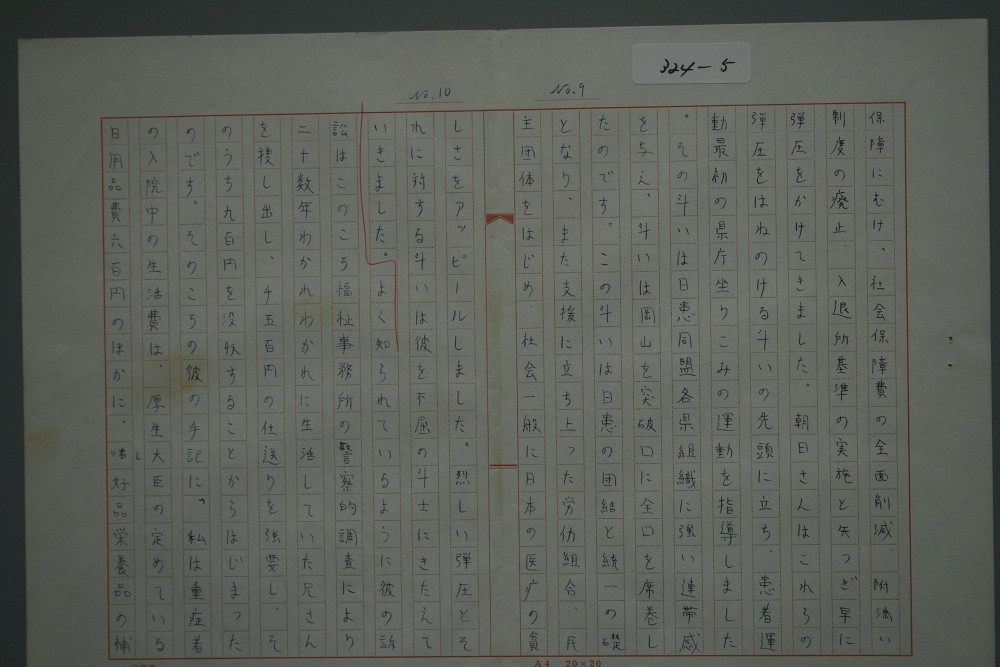 324-5
No.9
保障にむけ、社会保障費の全面削減、附添い
制度の廃止、入退所基準の実施と矢つぎ早に
弾圧をかけてきました。朝日さんはこれらの
弾圧をはねのける斗いの先頭に立ち、患者運
動最初の県庁坐りこみの運動を指導しました
。その斗いは日患同盟各県組織に強い連帯感
を与え、斗いは岡山を突破口に全口を席巻し
たのです。この斗いは日患の団結と統一の礎
となり、また支援に立ち上った労仂組合、民
主団体をはじめ、社会一般に日本の医疗の貧
No.10
しさをアッピールしました。烈しい弾圧とそ
れに対する斗いは彼を不屈の斗士にきたえて
いきました。よく知られているように彼の訴
訟はこのころ福祉事務所の警察的調査により
二十数年わかれわかれに生活していた兄さん
を捜し出し、千五百円の仕送りを強要し、そ
のうち九百円を没収することからはじまった
のです。そのころの彼の手記に、「私は重症者
の入院中の生活費は、厚生大臣の定めている
日用品費六百円のほかに、嗜好品栄養品の補
し
A4 20×20